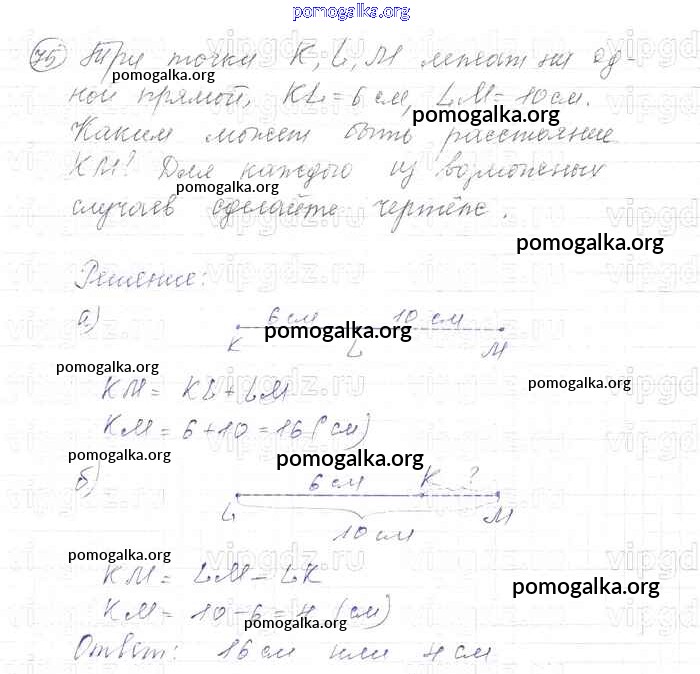 pomogalka.org
75 Три точки K, L, M лежат на од-
pomogalka.org
ной прямой, KL = 6 см, LM = 10 см.
pomogalka.org
Каким может быть расстояние
KM? Для каждого из возможных
pomogalka.org
случаев сделайте чертёж.
vipgdz.ru
pomogalka.org
Решение:
а) 6 см 10 см
pomogalka.org
K L M
pomogalka.org
KM = KL + LM
pomogalka.org
vipgdz.ru
KM = 6 + 10 = 16 (см)
pomogalka.org
pomogalka.org
б) 6 см K ?
L M
10 см
pomogalka.org
vipgdz.ru
KM = LM - LK
pomogalka.org
KM = 10 - 6 = 4 (см)
pomogalka.org
Ответ: 16 см или 4 см